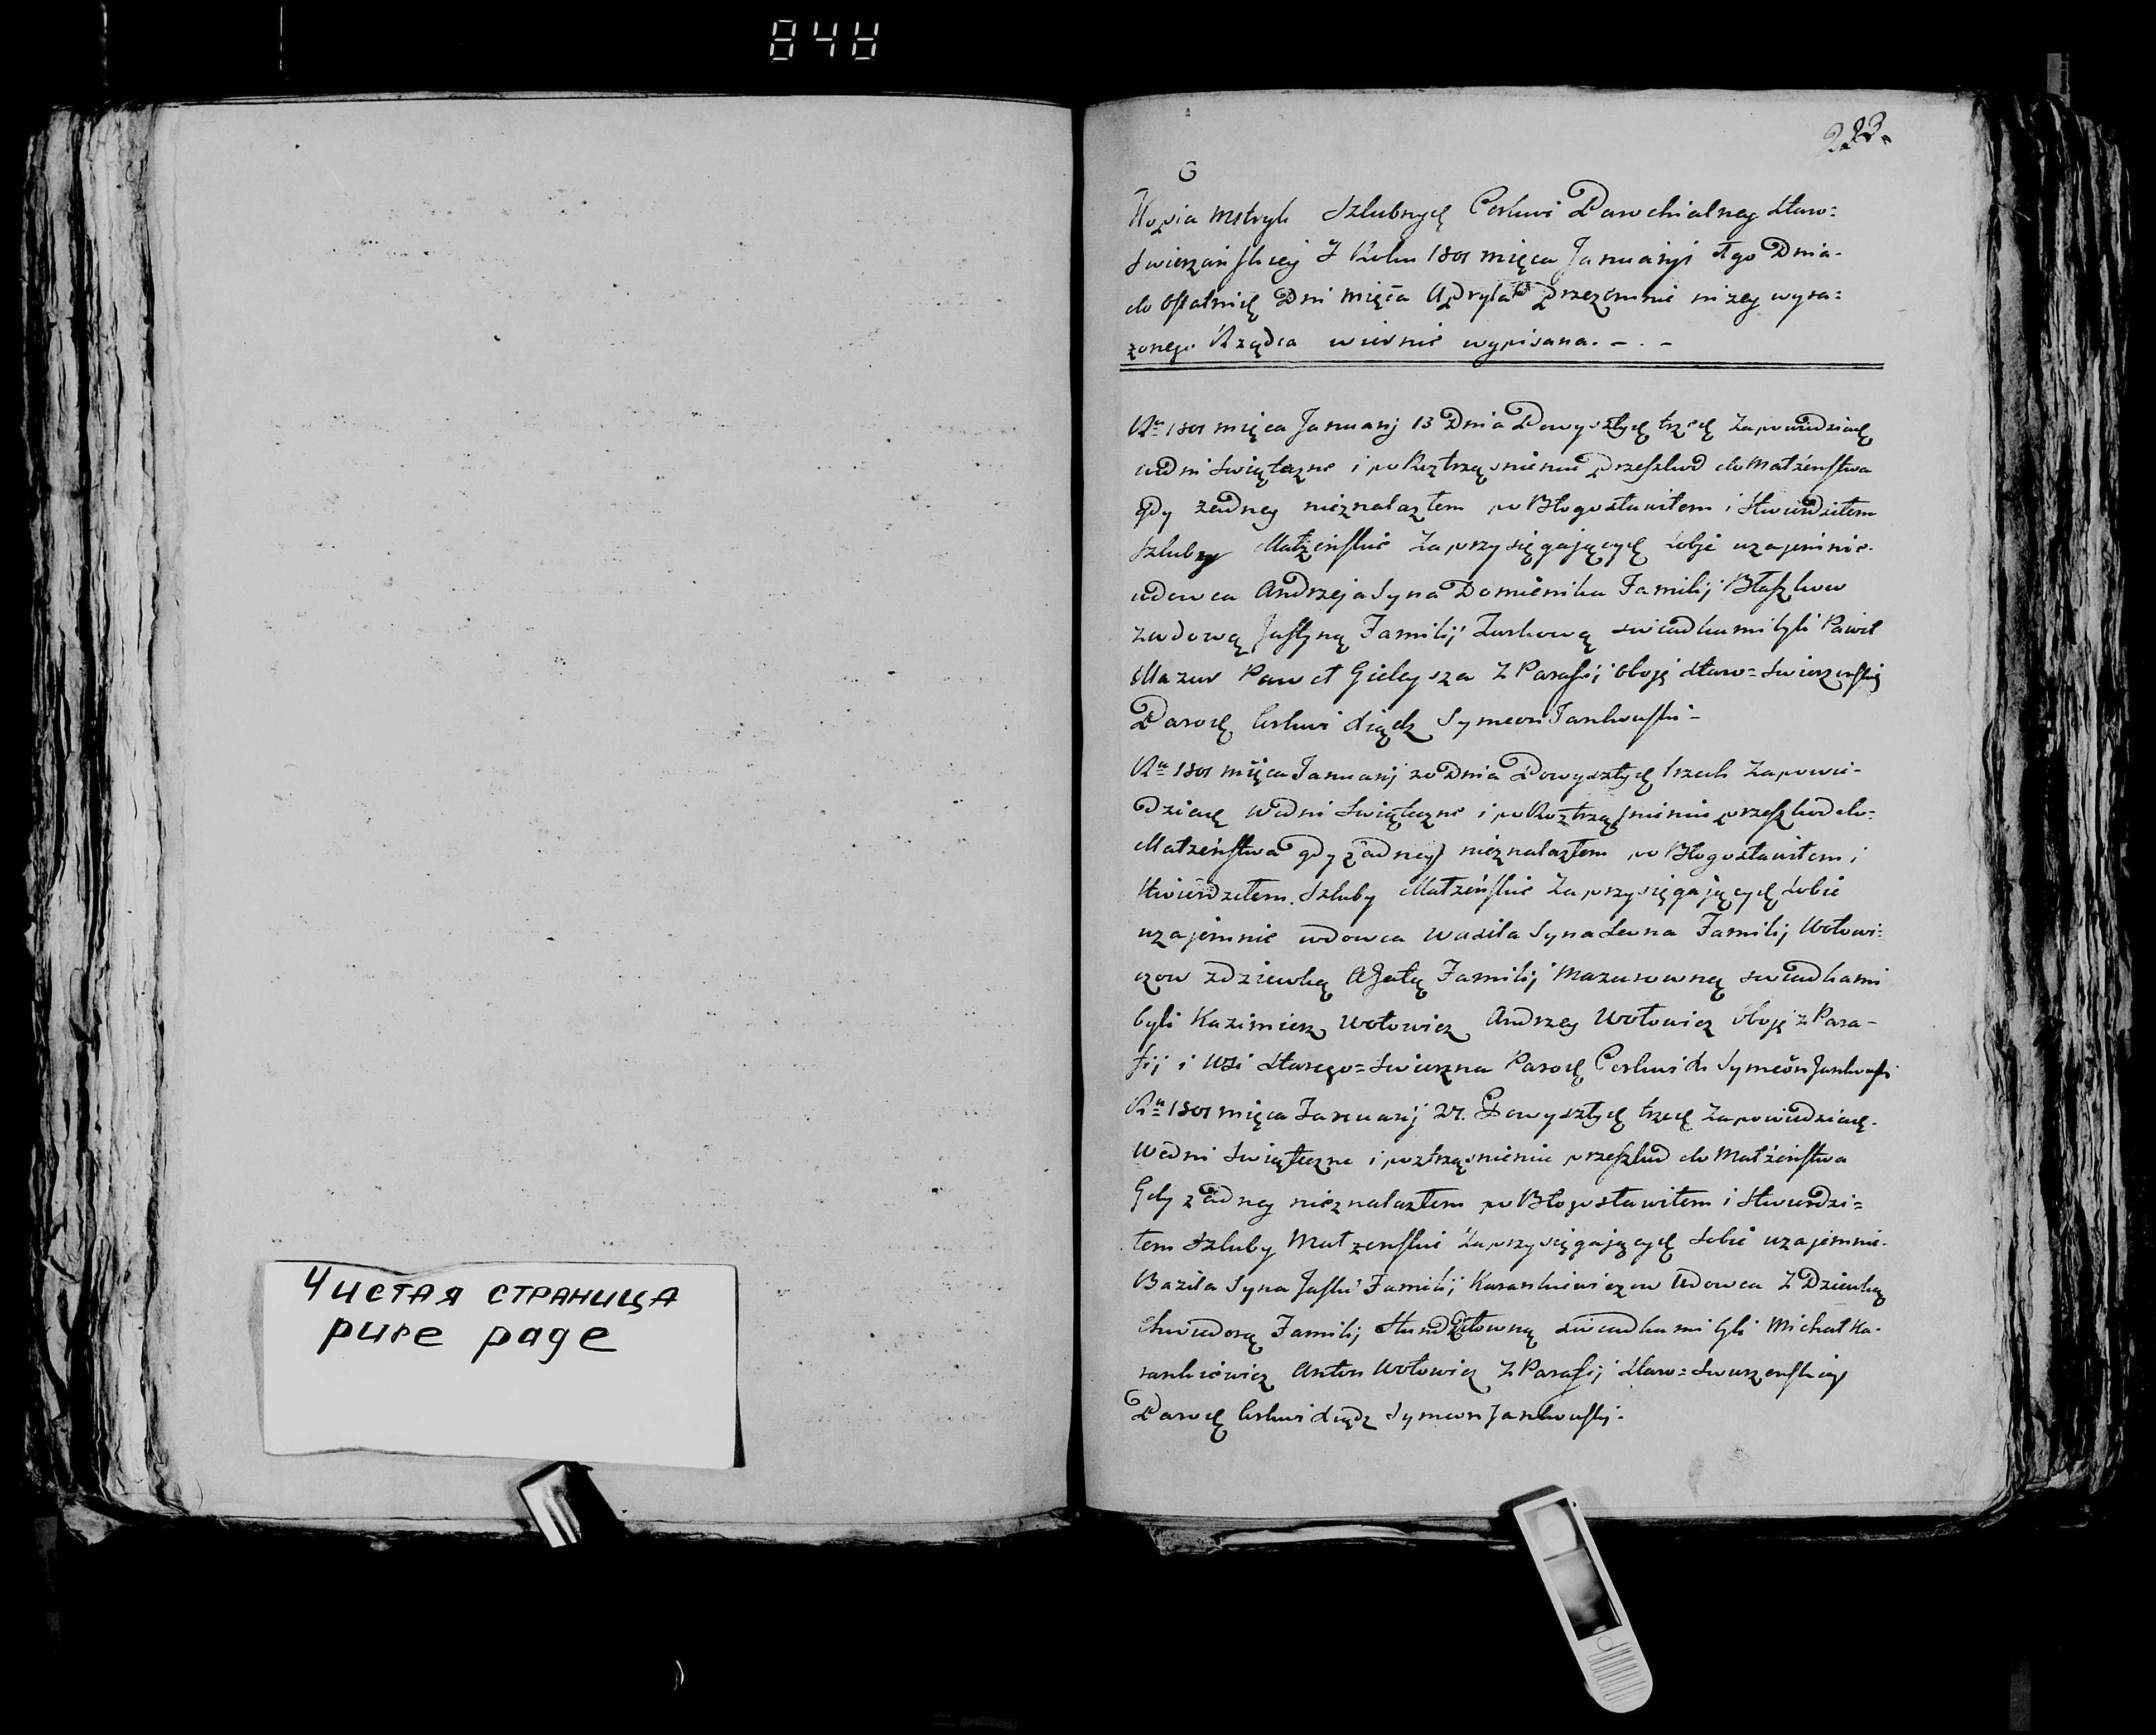 848
Чистая страница
pure page
223.
Kopia Metryk Szlubnych Cerkwi Parochialney Staro=
Swierzańskiey Z Roku 1801 mięca Januaryi 1go Dnia
do ostatnich Dni mięca Apryla przezemnie nizey wyra=
żonego Rządca wiernie wypisana. - . -
Ru 1801 mięca Januarij 13 Dnia Powyszłych trzech Zapowiedziach
wdni Swiąteczne i po Roztrząsnieniu przeszkod do Małżeństwa
gdy żadney nieznalazłem po Błogosławiłem i Stwierdziłem
Szluby Małżeńskie Zaprzysięgających sobie uzajemnie
wdowca Andrzeja Syna Domienika Familij Błaszkow
zwdową Justyną Familij Zurkową swiadkami byli Paweł
Mazur Paweł Gieleysza Z Parafij oboję Staro=Swierzenskiey
Paroch Cerkwi Xiądz Symeon Jankowski -
Ru 1801 mięca Januarij 20 Dnia Powyszłych trzech Zapowie-
dziach Wdni Swiąteczne i po Roztrząsnieniu przeszkod do=
Małżeństwa gdy żadney nieznalazłem po Błogosławiłem i
Stwierdziłem. Szluby Małżeńskie Zaprzysięgających Sobie
uzajemnie wdowca Wasila Syna Leona Familij Wołowi=
czow zdziewką Agatą Familij Mazurowną swiadkami
byli Kazimierz Wołowicz Andrzey Wołowicz oboję z Para-
fij i Wsi Starego=Swierzna Paroch Cerkwi X Symeon Jankowski
Ru 1801 mięca Januarij 27. Powyszłych trzech Zapowiedziach
Wedni Swiąteczne i poztrząsnieniu przeszkod do Małżeństwa
Gdy żadney nieznalazłem po Błogosławiłem i Stwierdzi=
łem Szluby Małżenskie Zaprzysięgających Sobie uzajemnie
Bazila Syna Familij Karankiewiczow Wdowca Z Dziewką
Chwiedorą Familij swiadkami byli Michał Ka-
rankiewicz Anton Wołowicz Z Parafij Staro=Swierzenskiey
Paroch Cerkwi Xiądz Symeon Jankowskij.